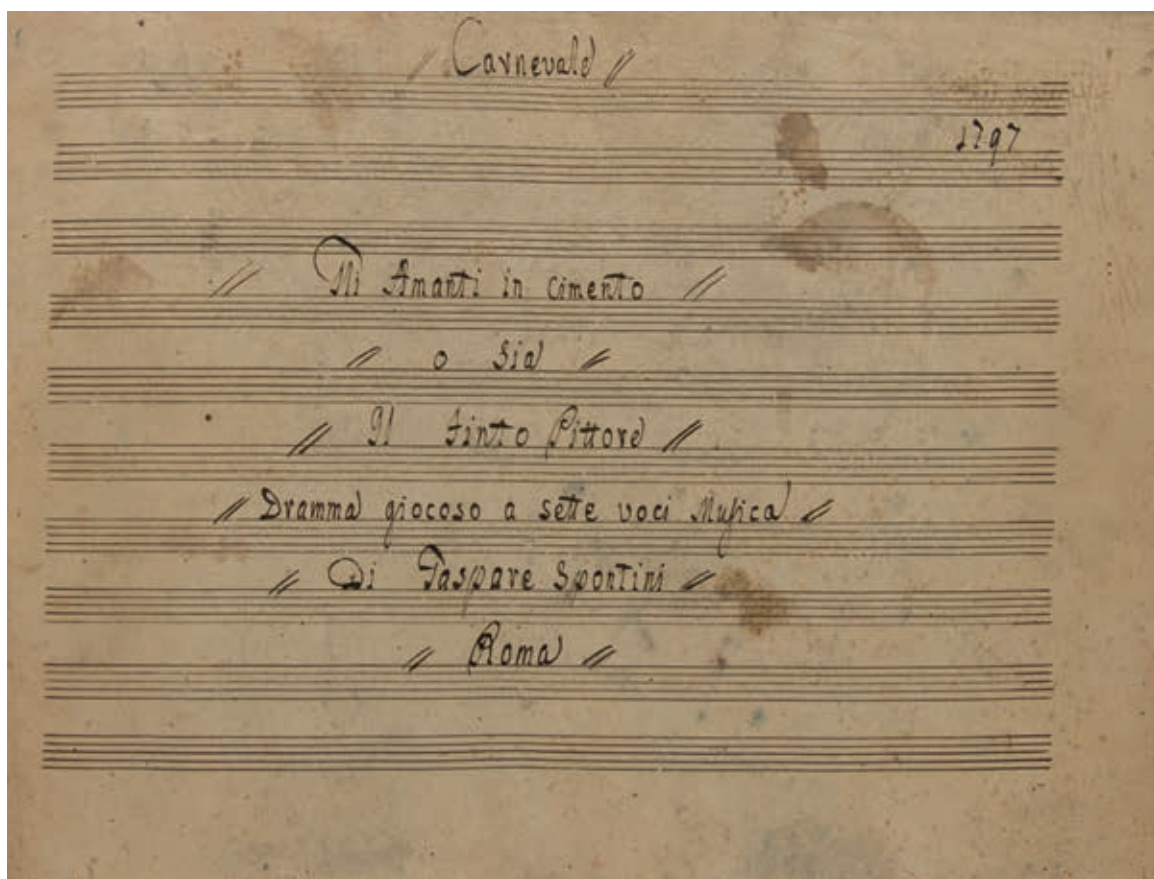 // Carnevale //
1797
// Gli Amanti in Cimento //
// o sia //
// Il Finto Pittore //
// Dramma giocoso a sette voci Musica //
// Di Gaspare Spontini //
// Roma //